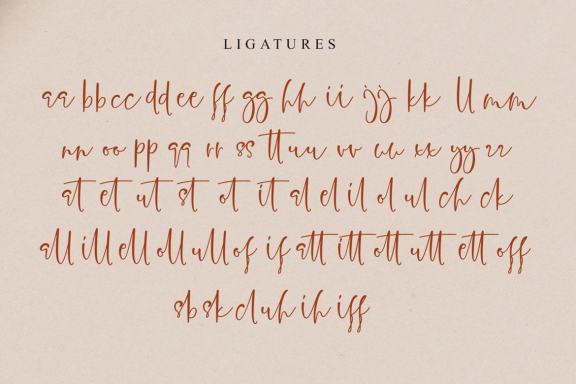 LIGATURES
aa bb cc dd ee ff gg hh ii jj kk ll mm
nn oo pp qq rr ss tt uu vv ww xx yy zz
at et ut st ot it al el il ol ul ch ck
all ill ell oll ull of if att itt ott utt ett off
sb sk cl uh ih iff